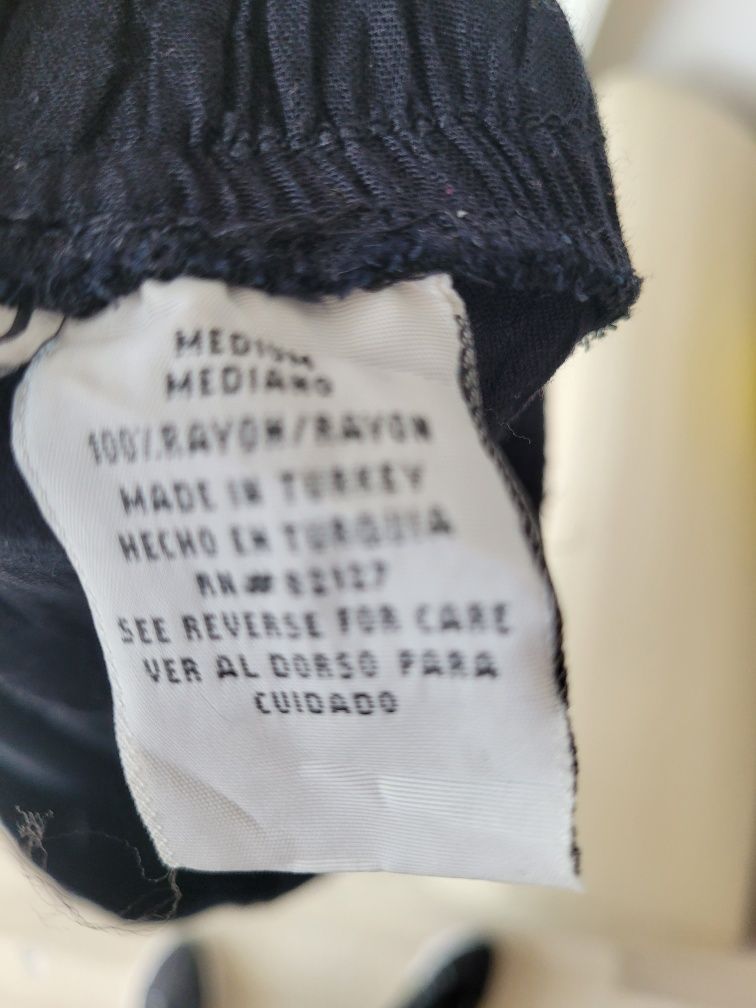 MEDIUM
MEDIANO
100% RAYON/RAYON
MADE IN TURKEY
HECHO EN TURQUIA
RN# 82127
SEE REVERSE FOR CARE
VER AL DORSO PARA
CUIDADO